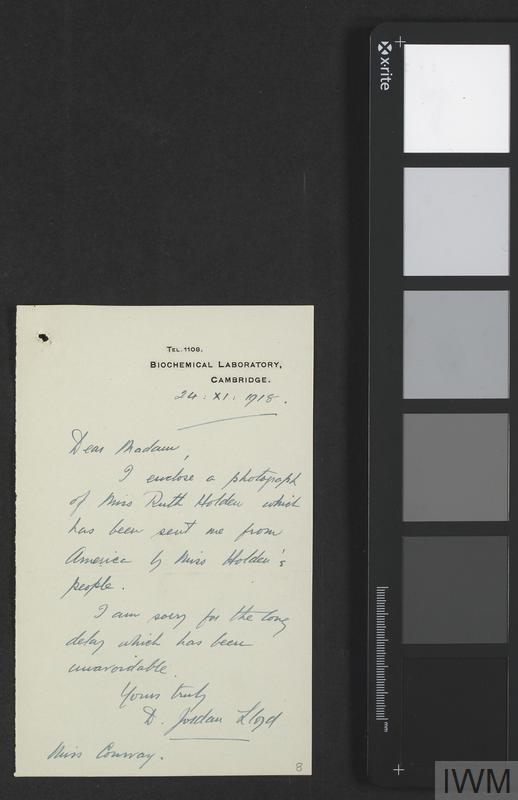 x·rite
TEL. 1108.
BIOCHEMICAL LABORATORY,
CAMBRIDGE.
24 : XI : 1918.
Dear Madam,
I enclose a photograph
of Miss Ruth Holden which
has been sent me from
America by Miss Holden's
people.
I am sorry for the long
delay which has been
unavoidable.
Yours truly
D. Jordan Lloyd
Miss Conway.
8
mm
IWM